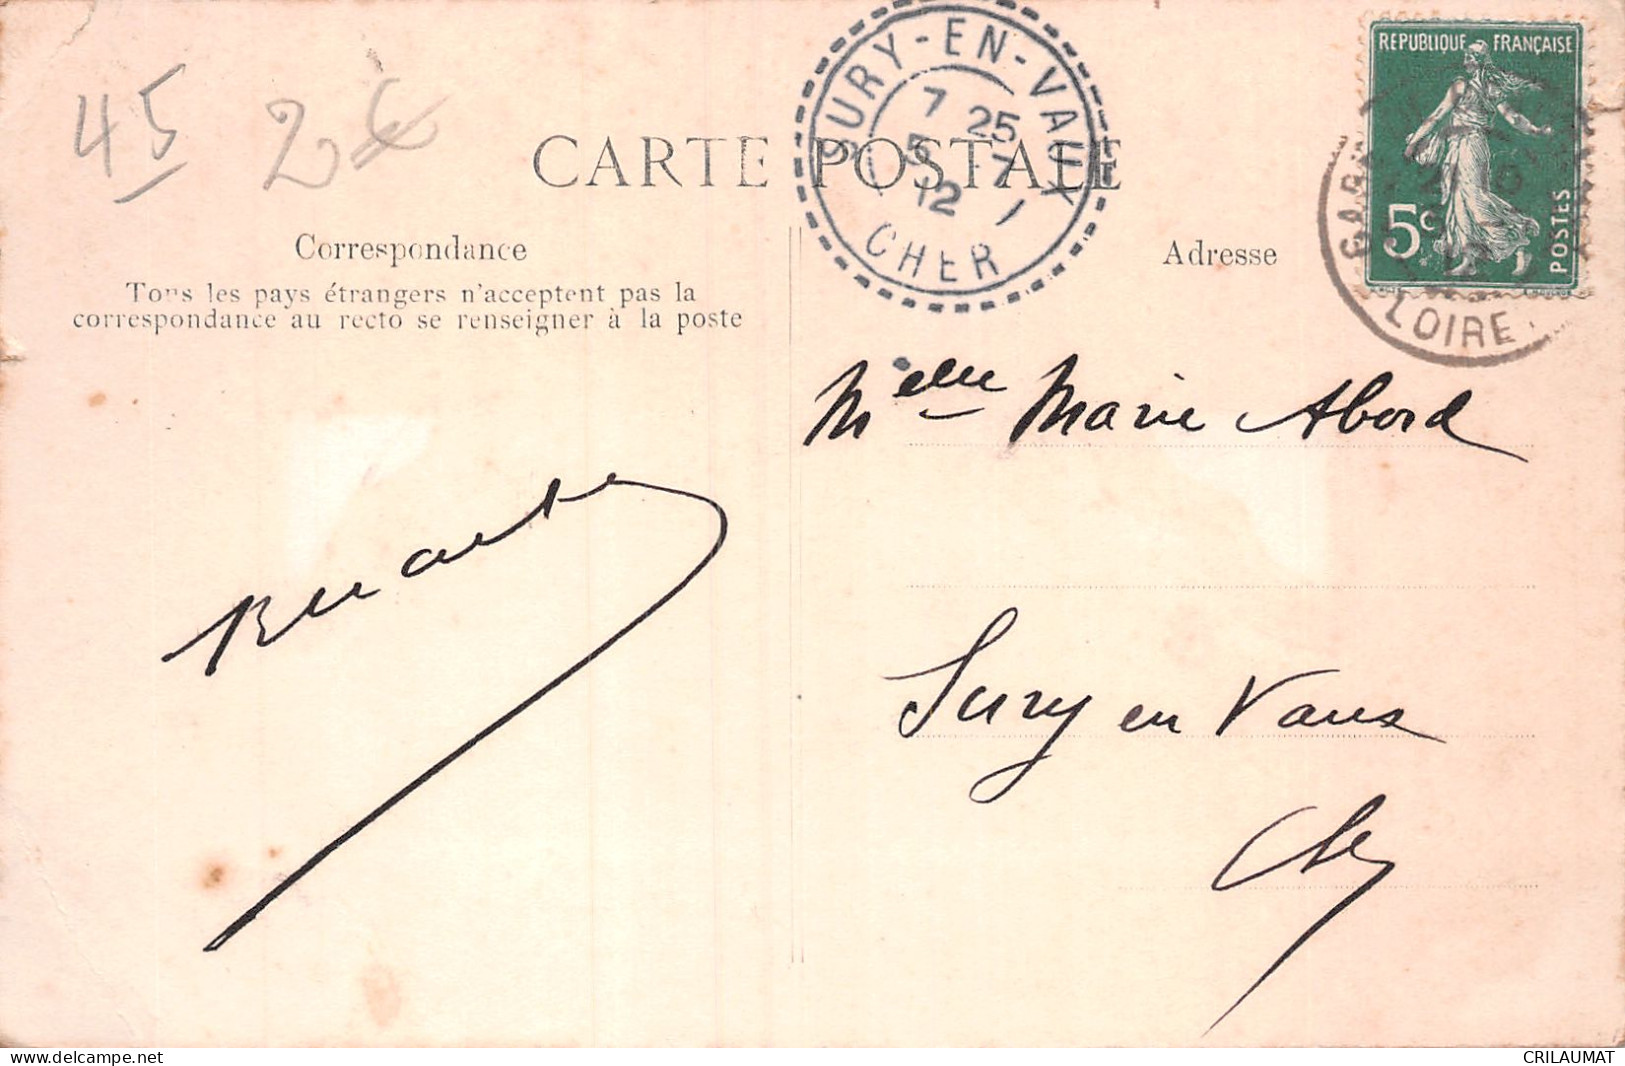 45 2€
CARTE POSTALE
Correspondance
Tous les pays étrangers n'acceptent pas la
correspondance au recto se renseigner à la poste
SURY-EN-VAUX
7 25
5 7
12
CHER
REPUBLIQUE FRANÇAISE
5c
POSTES
LOIRE
Adresse
Melle Marie Abord
Sury en Vaux
Cher
delcampe.net
CRILAUMAT